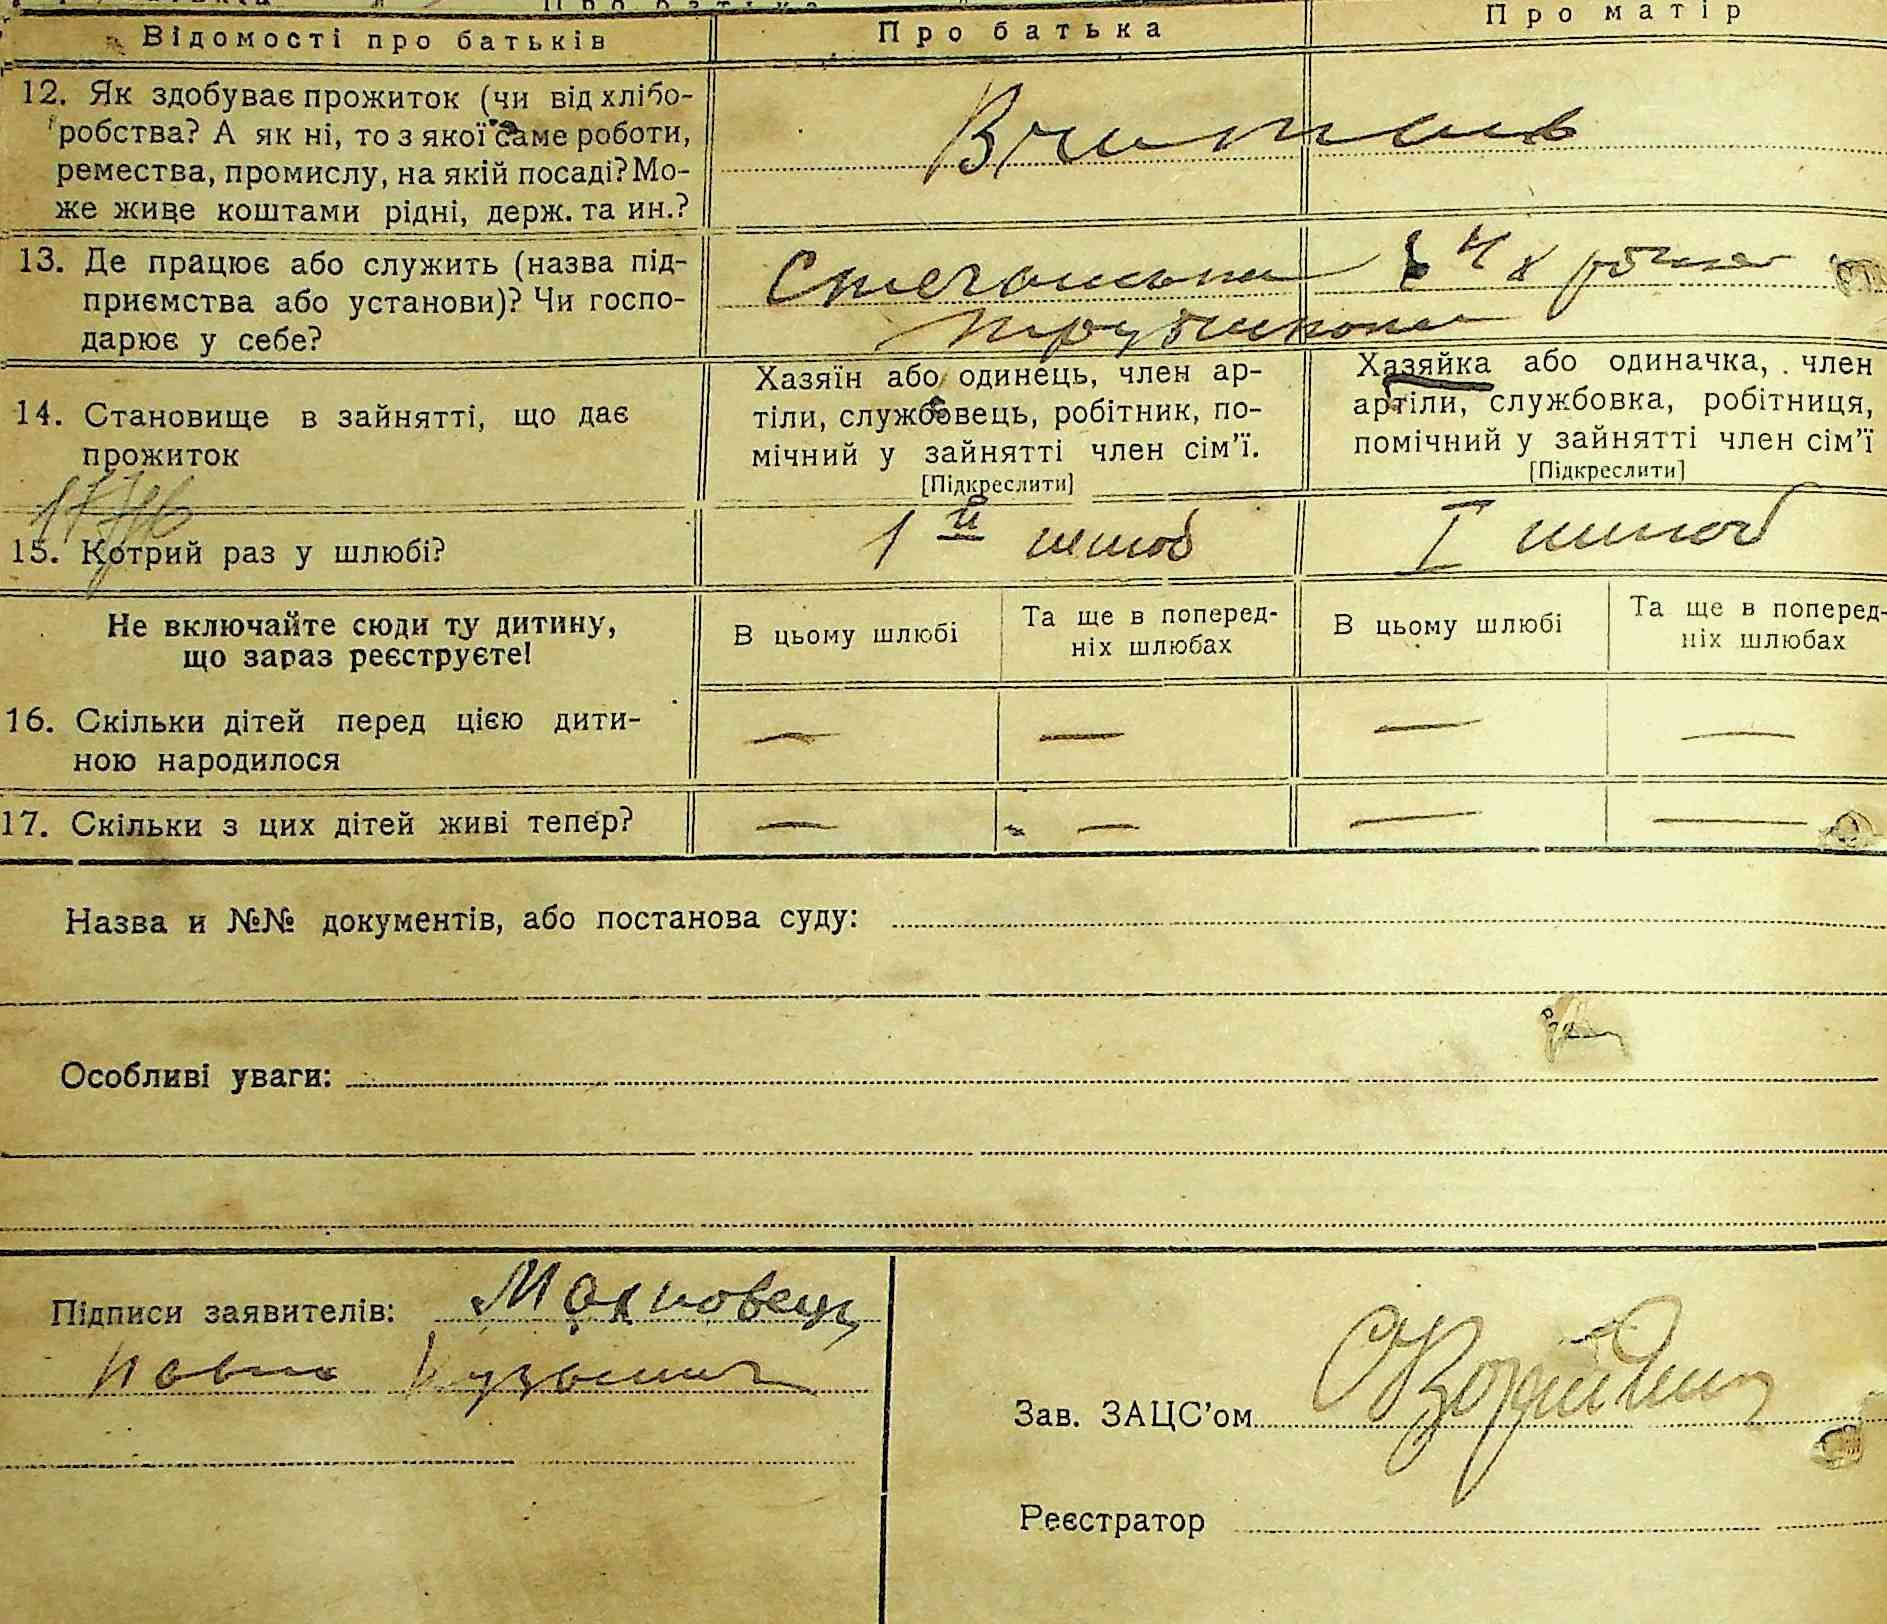 Відомості про батьків
Про батька
Про матір
12. Як здобуває прожиток (чи від хлібо-
робства? А як ні, то з якої саме роботи,
ремества, промислу, на якій посаді? Мо-
же живе коштами рідні, держ. та ин.?
Вчитель
13. Де працює або служить (назва під-
приємства або установи)? Чи госпо-
дарює у себе?
14. Становище в зайнятті, що дає
прожиток
Хазяїн або одинець, член ар-
тіли, службовець, робітник, по-
мічний у зайнятті член сім'ї.
[Підкреслити]
Хазяйка або одиначка, член
артіли, службовка, робітниця,
помічний у зайнятті член сім'ї
[Підкреслити]
15. Котрий раз у шлюбі?
1й шлюб
I шлюб
Не включайте сюди ту дитину,
що зараз реєструєте!
В цьому шлюбі
Та ще в поперед-
ніх шлюбах
В цьому шлюбі
Та ще в поперед-
ніх шлюбах
16. Скільки дітей перед цією дити-
ною народилося
— — — —
17. Скільки з цих дітей живі тепер?
— — — —
Назва и №№ документів, або постанова суду:
Особливі уваги:
Підписи заявителів: Махновець
Павло Кузьмич
Зав. ЗАЦС'ом
Реєстратор